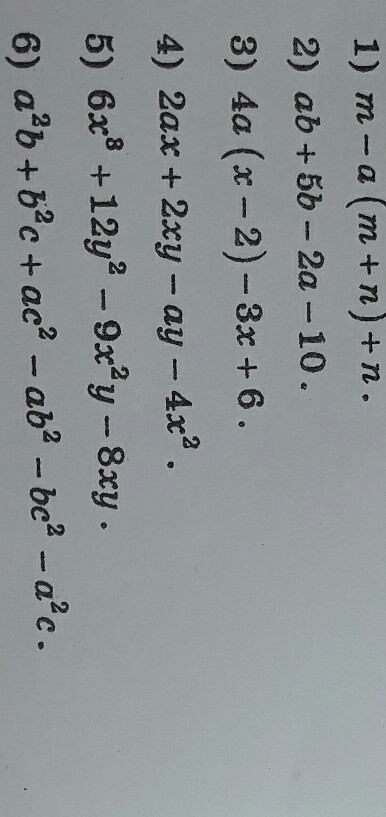 1) m − a (m + n) + n.
2) ab + 5b − 2a − 10.
3) 4a (x − 2) − 3x + 6.
4) 2ax + 2xy − ay − 4x².
5) 6x³ + 12y² − 9x²y − 8xy.
6) a²b + b²c + ac² − ab² − bc² − a²c.